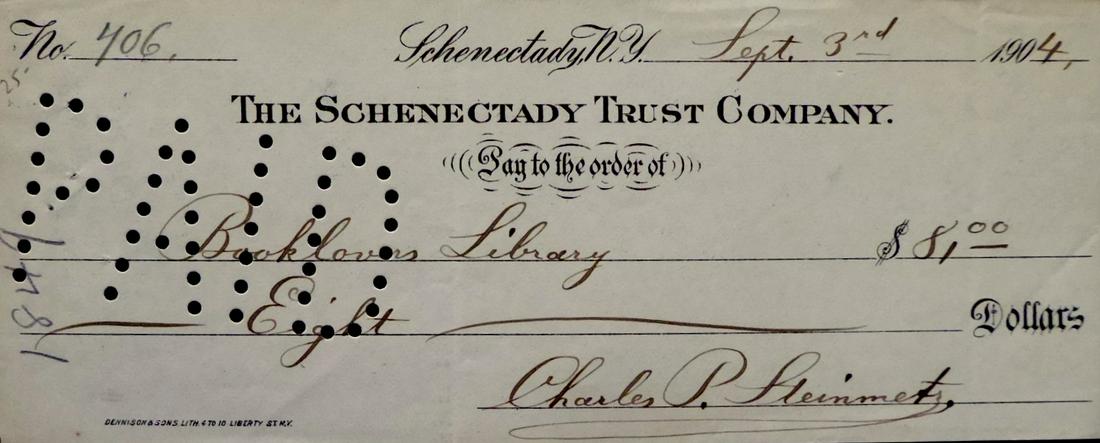 No. 406. Schenectady, N.Y. Sept. 3rd 1904,
25
THE SCHENECTADY TRUST COMPANY.
Pay to the order of
PAID
Booklovers Library $ 8,00
Eight Dollars
Charles P. Steinmetz.
DENNISON & SONS. LITH. 4 TO 10 LIBERTY ST. N.Y.